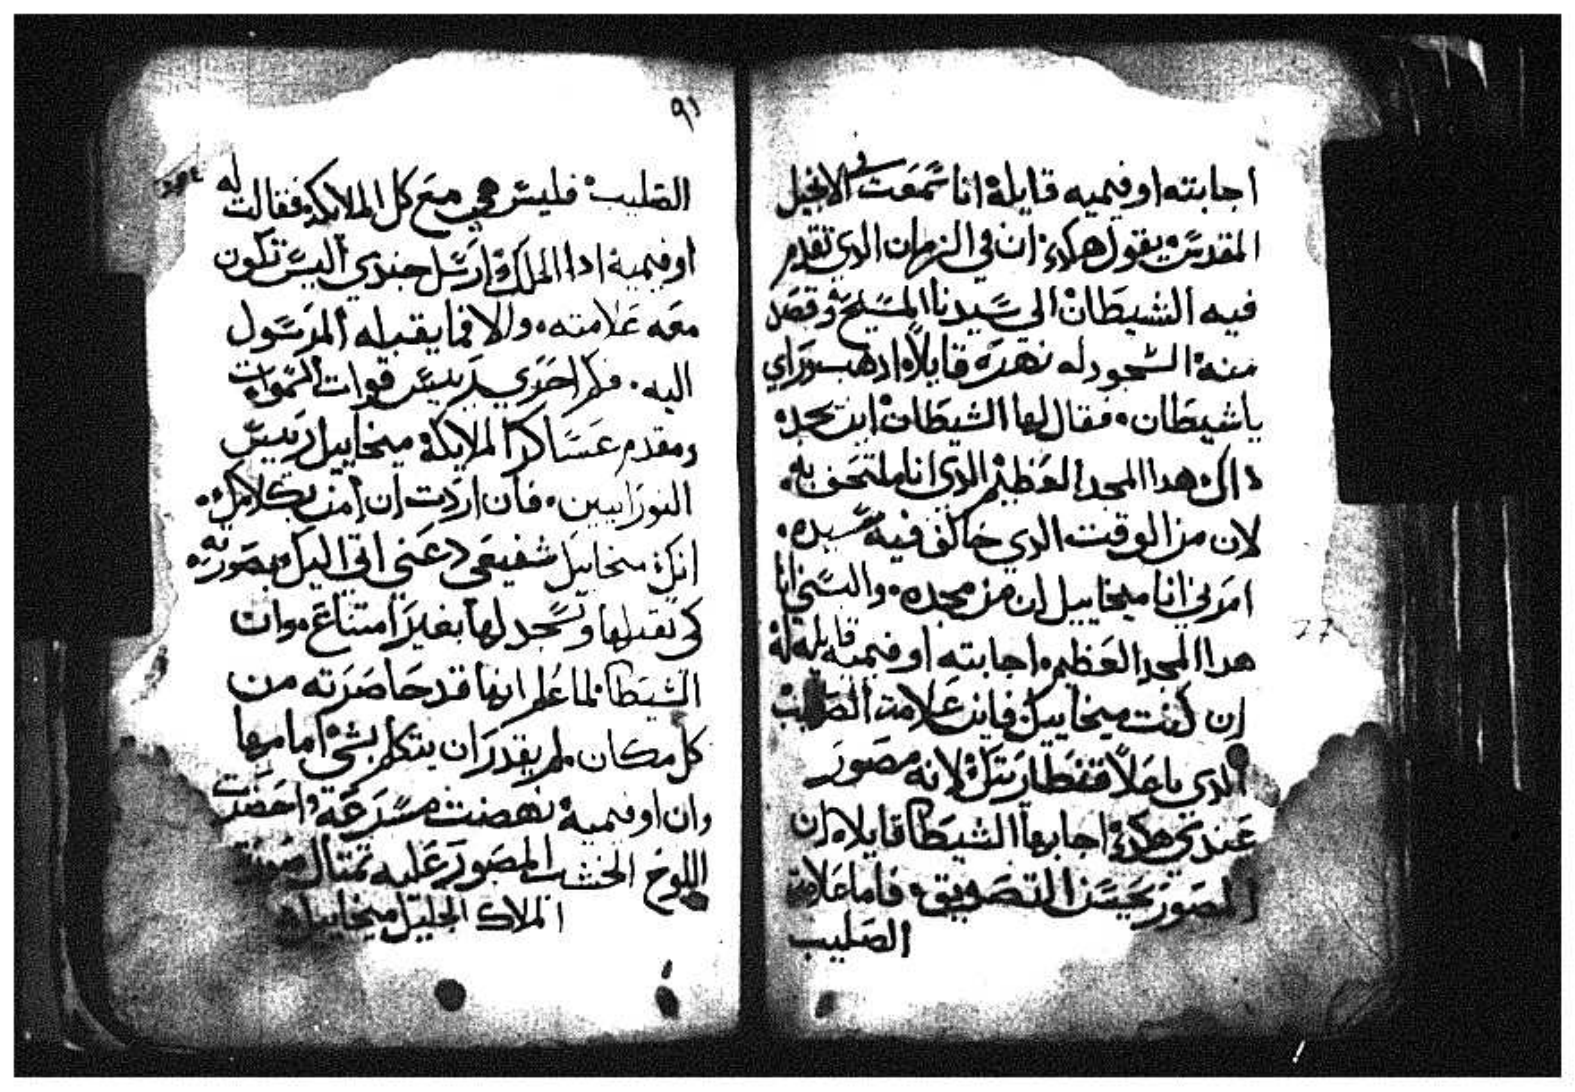 اجابته اوفيميه قايلة انا سمعت في الانجيل
المقدس يقول هكدا ان في الزمان الدي تقدم
فيه الشيطان الى سيدنا المسيح وقصد
منه السجود له نهره قايلا ادهب وراي
ياشيطان فقال لها الشيطان اين تجد
هدا المجد العظيم الدي انا ملتحف به
لان من الوقت الدي خالف فيه
امرني انا ميخاييل ان من مجده والبسني انا
هدا المجد العظيم اجابته اوفيمية قايلة له
ان كنت ميخاييل فاين علامة الصليب
الدي لانه مصور
عندي هكدا اجابها الشيطان قايلا ان
المصور التصويق فاما علامة
الصليب
٩١
الصليب فليس هي مع كل الملايكة فقالت له
اوفيمية ادا الملك ارسل جندي اليس تكون
معه علامته والا فما يقبله المرسول
اليه فكم احري رييس قوات السموات
ومقدم عساكر الملايكة ميخاييل رييس
النورانيين فان اردت ان امن بكلامك
انك ميخاييل شفيعي دعني اتي اليك بصورته
كي تقبلها وتسجد لها بغير امتناع وان
الشيطان لما علم انها قد حاصرته من
كل مكان لم يقدر ان يتكلم بشي امامها
وان اوفيمية نهضت مسرعة واحضرت
اللوح الخشب المصور عليه تمتال صورة
الملاك الجليل ميخاييل